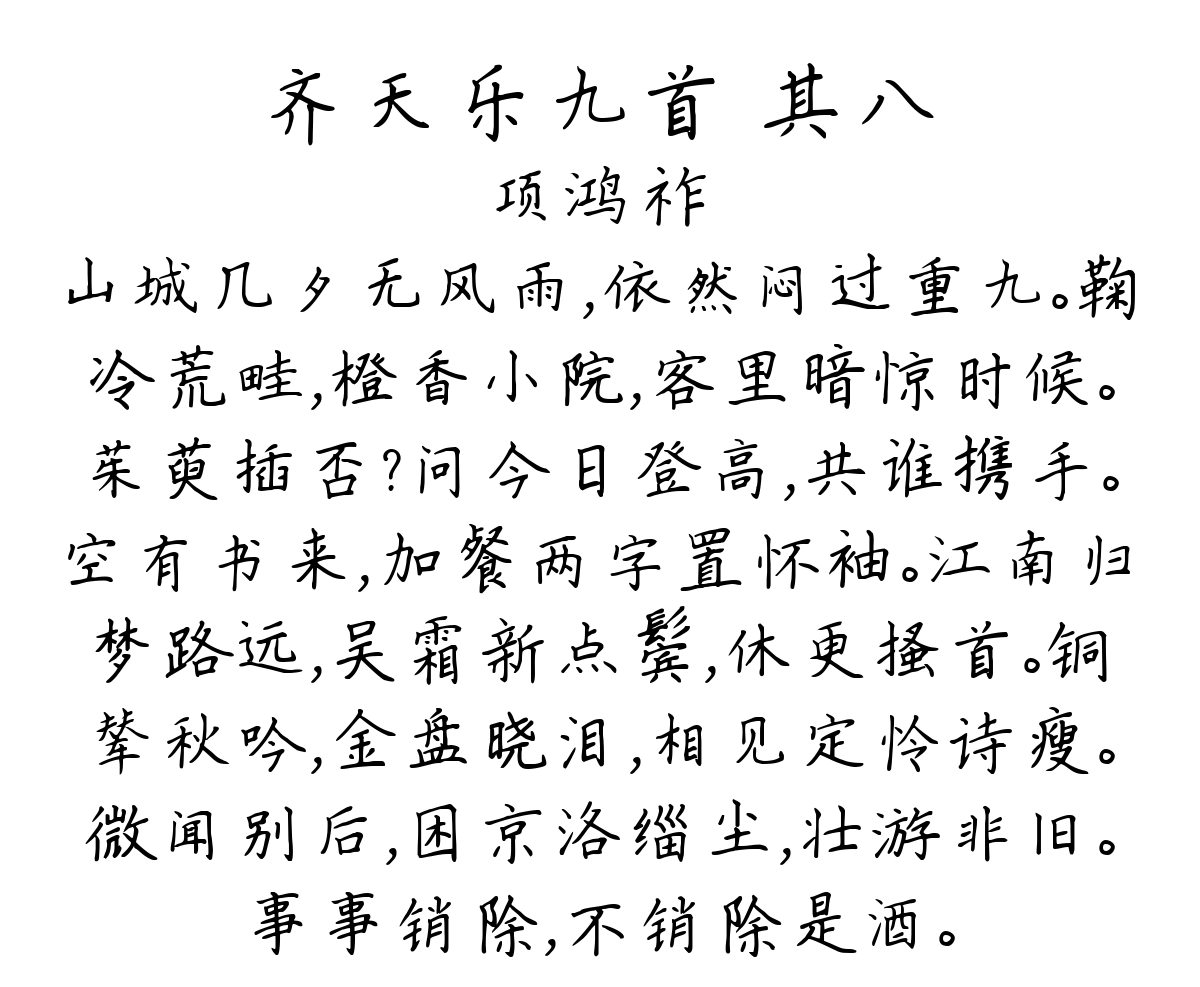 齐天乐九首 其八
项鸿祚
山城几夕无风雨,依然闷过重九。鞠
冷荒畦,橙香小院,客里暗惊时候。
茱萸插否?问今日登高,共谁携手。
空有书来,加餐两字置怀袖。江南归
梦路远,吴霜新点鬓,休更搔首。铜
辇秋吟,金盘晓泪,相见定怜诗瘦。
微闻别后,困京洛缁尘,壮游非旧。
事事销除,不销除是酒。